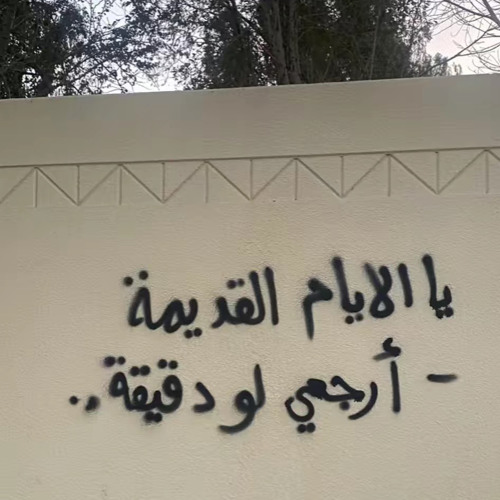 يا الايام القديمة
- أرجعي لو دقيقة..